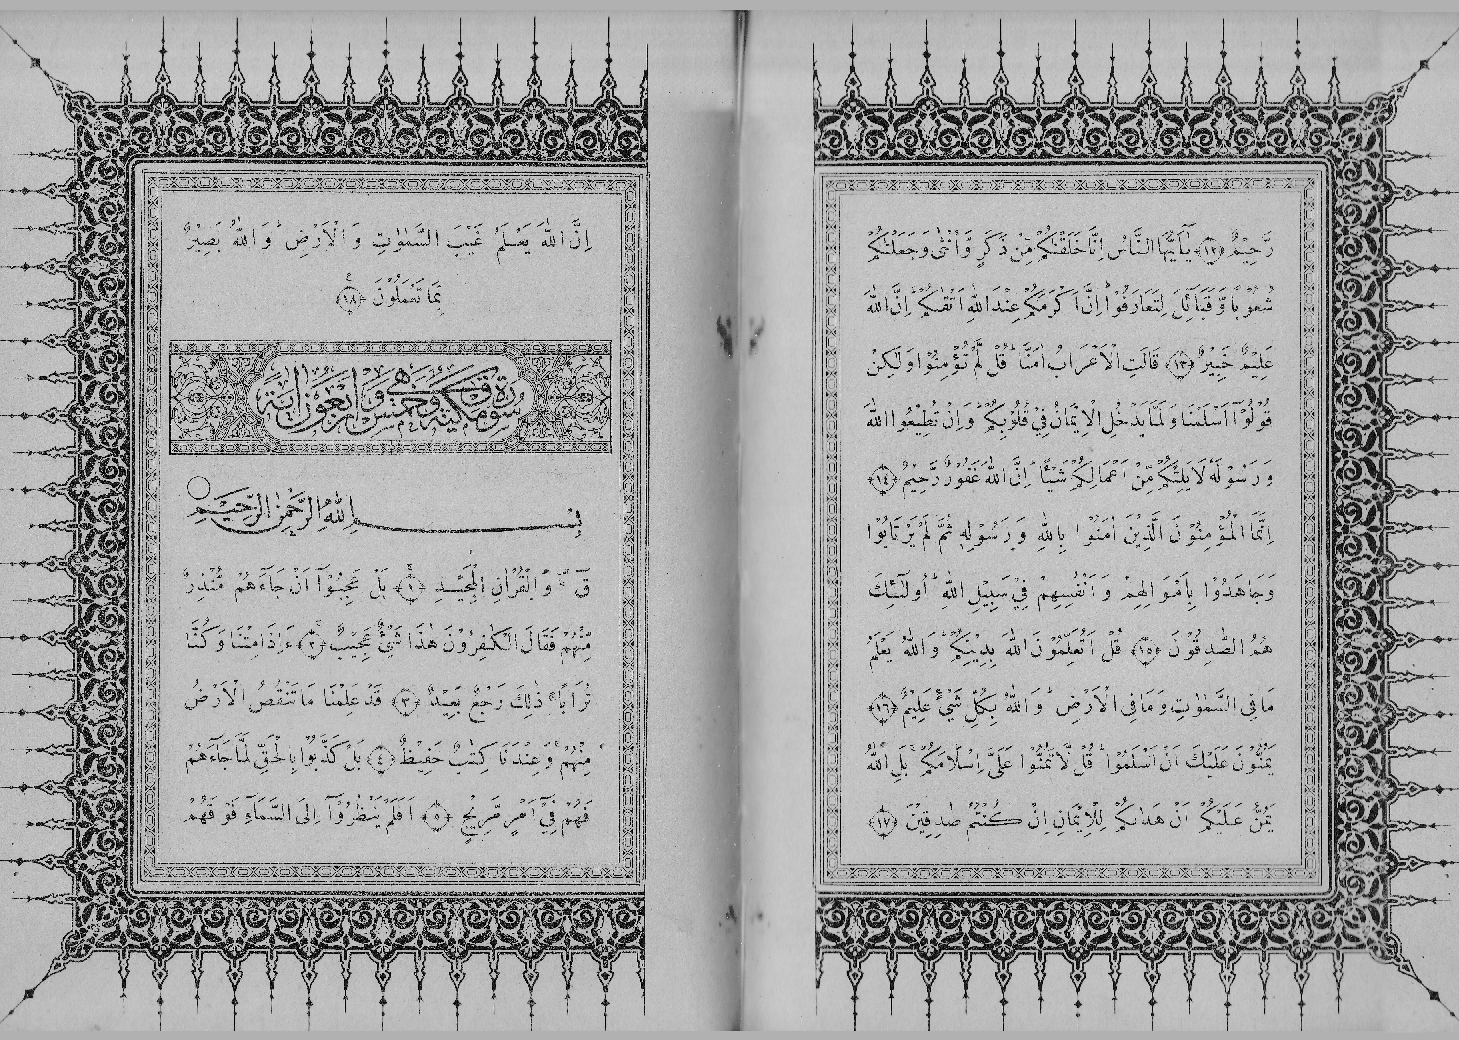 رَّحِيْمٌ ﴿١٢﴾ يٰٓاَيُّهَا النَّاسُ اِنَّا خَلَقْنٰكُمْ مِّنْ ذَكَرٍ وَّاُنْثٰى وَجَعَلْنٰكُمْ
شُعُوْبًا وَّقَبَآئِلَ لِتَعَارَفُوْا ۗ اِنَّ اَكْرَمَكُمْ عِنْدَ اللّٰهِ اَتْقٰىكُمْ ۗ اِنَّ اللّٰهَ
عَلِيْمٌ خَبِيْرٌ ﴿١٣﴾ قَالَتِ الْاَعْرَابُ اٰمَنَّا ۗ قُلْ لَّمْ تُؤْمِنُوْا وَلٰكِنْ
قُوْلُوْٓا اَسْلَمْنَا وَلَمَّا يَدْخُلِ الْاِيْمَانُ فِيْ قُلُوْبِكُمْ ۗ وَاِنْ تُطِيْعُوا اللّٰهَ
وَرَسُوْلَهٗ لَا يَلِتْكُمْ مِّنْ اَعْمَالِكُمْ شَيْئًا ۗ اِنَّ اللّٰهَ غَفُوْرٌ رَّحِيْمٌ ﴿١٤﴾
اِنَّمَا الْمُؤْمِنُوْنَ الَّذِيْنَ اٰمَنُوْا بِاللّٰهِ وَرَسُوْلِهٖ ثُمَّ لَمْ يَرْتَابُوْا
وَجَاهَدُوْا بِاَمْوَالِهِمْ وَاَنْفُسِهِمْ فِيْ سَبِيْلِ اللّٰهِ ۗ اُولٰٓئِكَ
هُمُ الصّٰدِقُوْنَ ﴿١٥﴾ قُلْ اَتُعَلِّمُوْنَ اللّٰهَ بِدِيْنِكُمْ ۗ وَاللّٰهُ يَعْلَمُ
مَا فِى السَّمٰوٰتِ وَمَا فِى الْاَرْضِ ۗ وَاللّٰهُ بِكُلِّ شَيْءٍ عَلِيْمٌ ﴿١٦﴾
يَمُنُّوْنَ عَلَيْكَ اَنْ اَسْلَمُوْا ۗ قُلْ لَّا تَمُنُّوْا عَلَيَّ اِسْلَامَكُمْ ۚ بَلِ اللّٰهُ
يَمُنُّ عَلَيْكُمْ اَنْ هَدٰىكُمْ لِلْاِيْمَانِ اِنْ كُنْتُمْ صٰدِقِيْنَ ﴿١٧﴾
اِنَّ اللّٰهَ يَعْلَمُ غَيْبَ السَّمٰوٰتِ وَالْاَرْضِ ۗ وَاللّٰهُ بَصِيْرٌۢ
بِمَا تَعْمَلُوْنَ ﴿١٨﴾
سورة ق مكية وهى خمس واربعون اية
بِسْمِ اللّٰهِ الرَّحْمٰنِ الرَّحِيْمِ
قٓ ۚ وَالْقُرْاٰنِ الْمَجِيْدِ ﴿١﴾ بَلْ عَجِبُوْٓا اَنْ جَآءَهُمْ مُّنْذِرٌ
مِّنْهُمْ فَقَالَ الْكٰفِرُوْنَ هٰذَا شَيْءٌ عَجِيْبٌ ﴿٢﴾ ءَاِذَا مِتْنَا وَكُنَّا
تُرَابًا ۚ ذٰلِكَ رَجْعٌۢ بَعِيْدٌ ﴿٣﴾ قَدْ عَلِمْنَا مَا تَنْقُصُ الْاَرْضُ
مِنْهُمْ ۚ وَعِنْدَنَا كِتٰبٌ حَفِيْظٌ ﴿٤﴾ بَلْ كَذَّبُوْا بِالْحَقِّ لَمَّا جَآءَهُمْ
فَهُمْ فِيْٓ اَمْرٍ مَّرِيْجٍ ﴿٥﴾ اَفَلَمْ يَنْظُرُوْٓا اِلَى السَّمَآءِ فَوْقَهُمْ